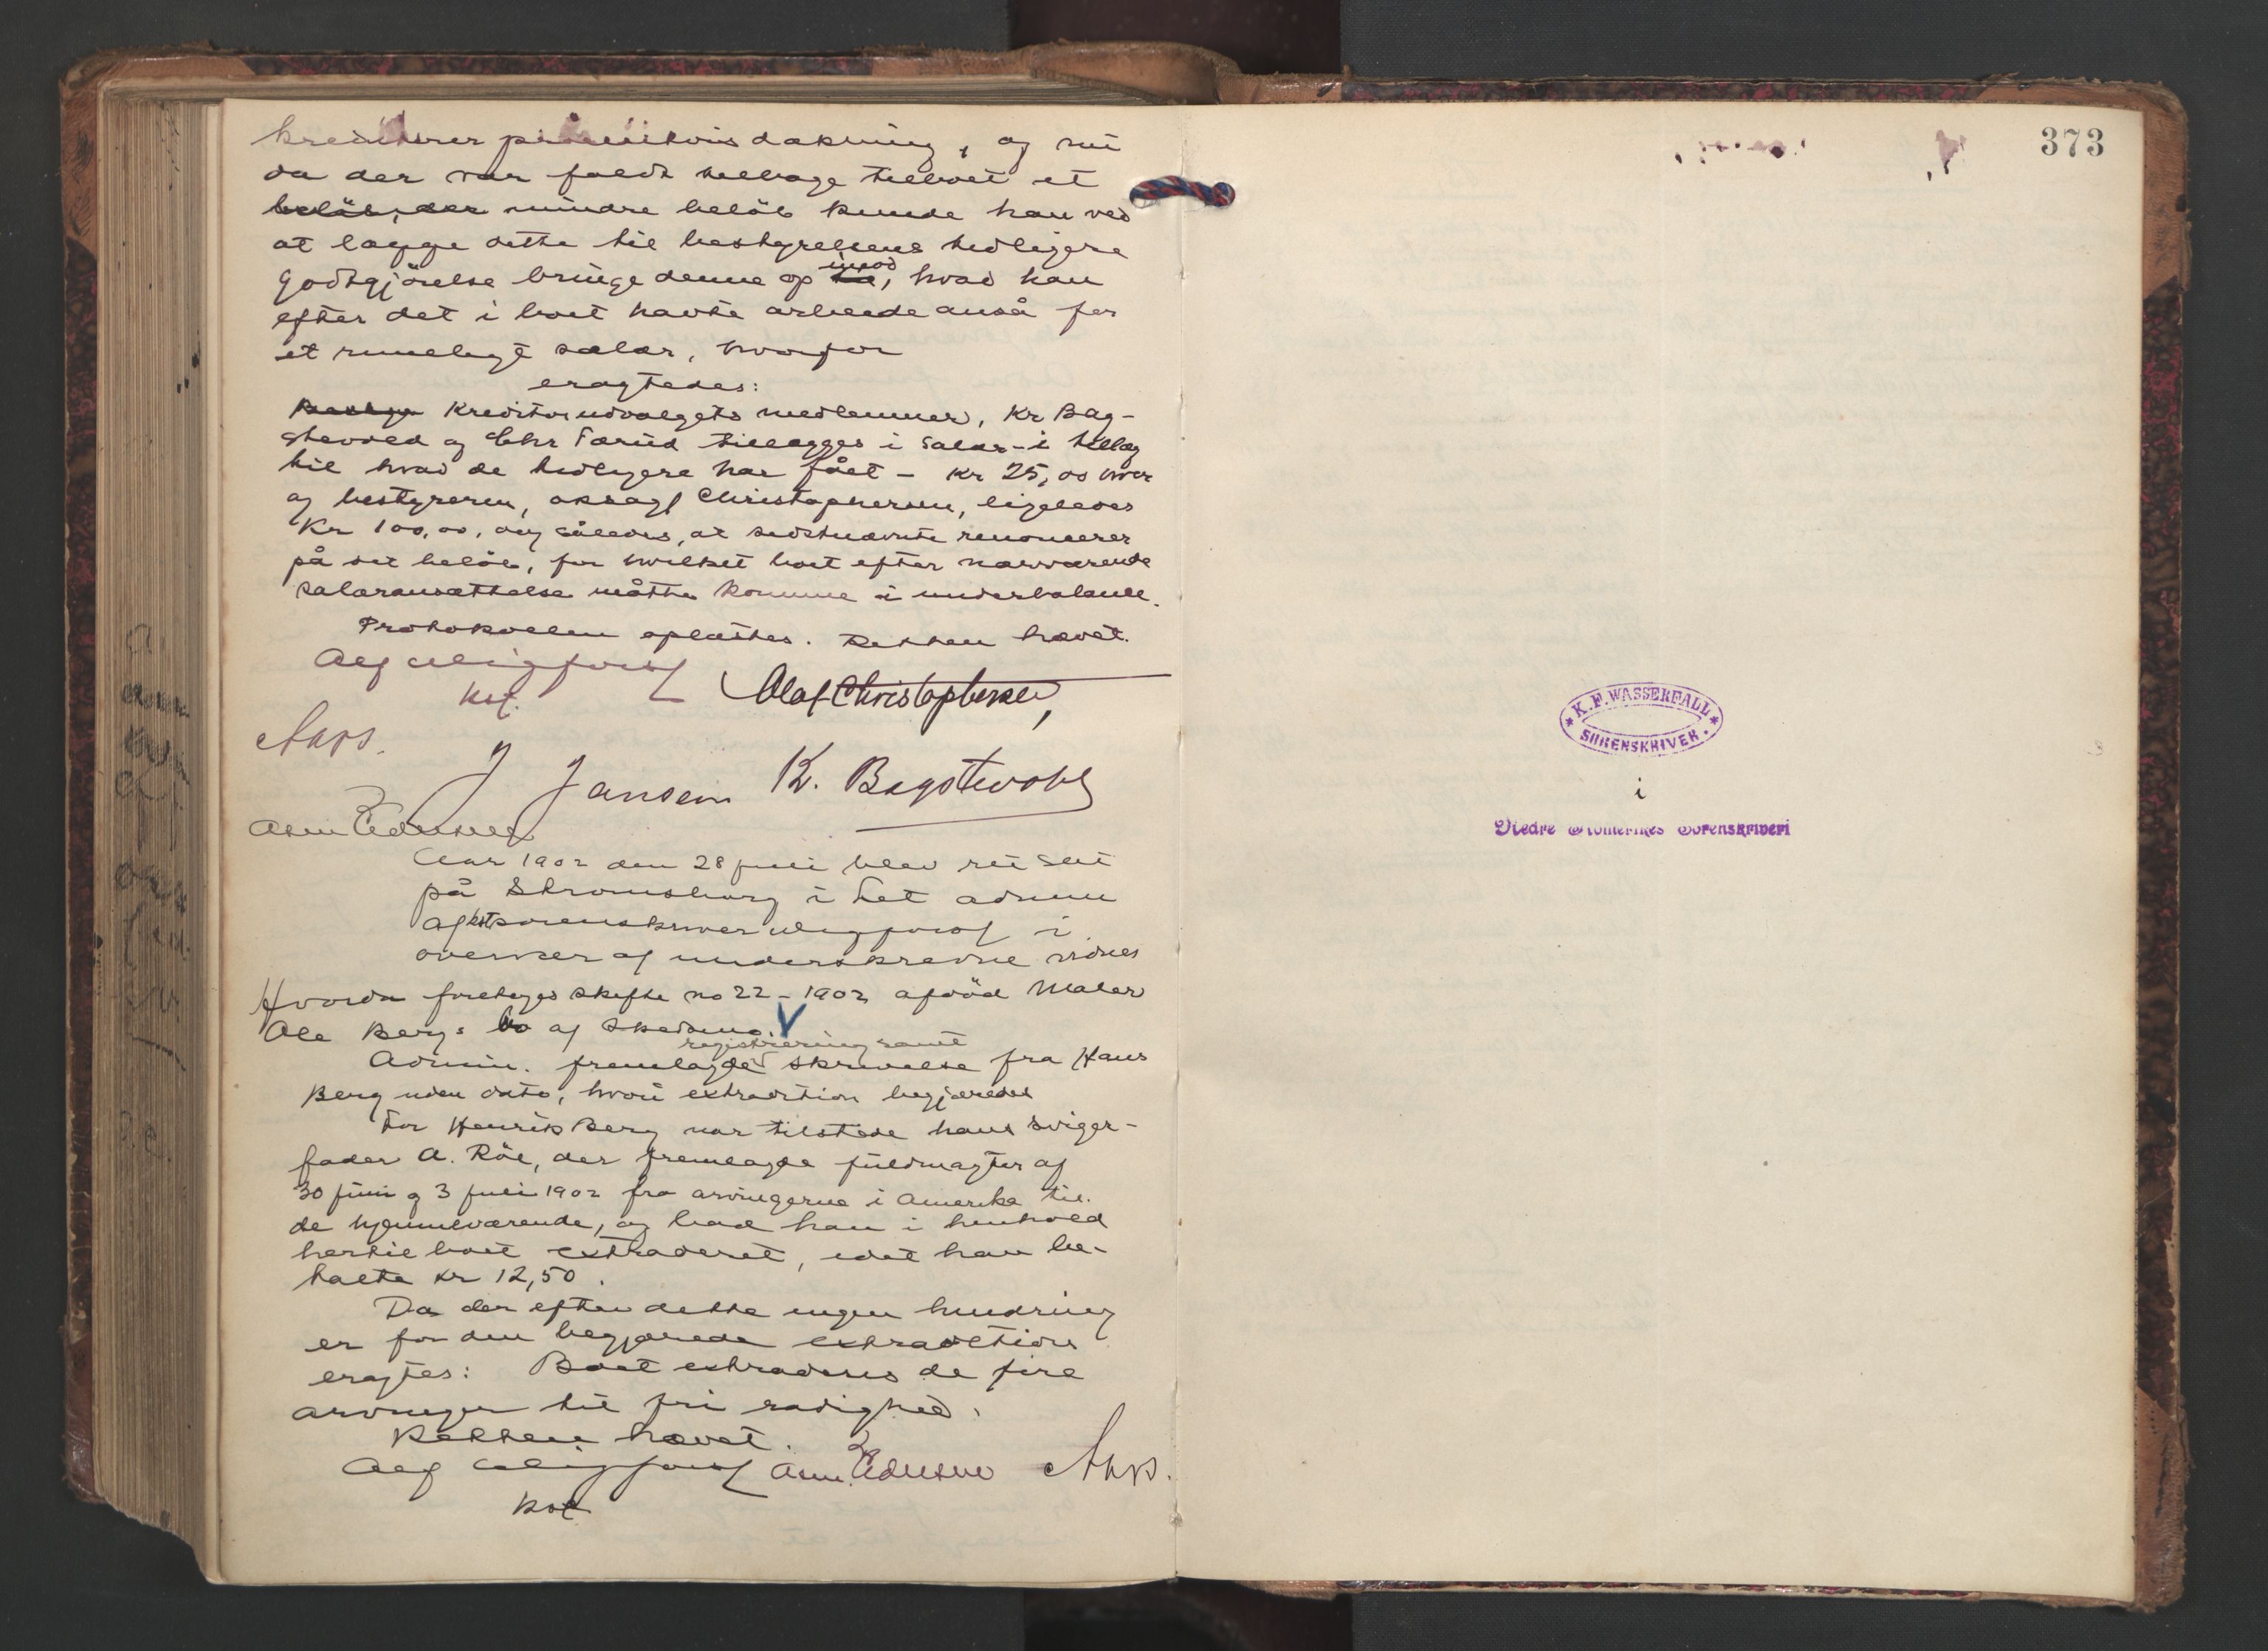 kreditorer procentvis dækning, og nu
da der var faldt tilbage til boet et
beløb, der mindre beløb kunde han ved
at lægge dette til bestyrelsens tidligere
godtgjørelse bringe denne op imod, hvad han
efter det i boet havte arbeide anså for
et rimeligt salær, hvorfor
eragtedes:
Kreditorudvalgets medlemmer, Kr Bag-
stevold og Chr Færud tillægges i salær - i tillæg
til hvad de tidligere har fået - kr 25,00 hver
og bestyreren, oksagf Christophersen, ligeledes
Kr 100,00, dog således, at sidstnævnte renoncerer
på det beløb, for hvilket boet efter nærværende
salæransættelse måtte komme i underbalance.
Protokollen oplæstes. Retten hævet.
Alf
kst.
Olaf Christophersen,
J Jansen K. Bagstevold
Asm Pedersen
Aar 1902 den 28 juli blev ret sat
på Strømsborg i Let admin
af kst sorenskriver i
overvær af underskrevne vidner
Hvorda foretoges skifte no 22 - 1902 afdød Maler
Ole Bergs bo af Skedsmo. V
registrering samt
Admin. fremlagde skrivelse fra Hans
Berg uden dato, hvori extradition begjæredes
For Henrik Berg var tilstede hans sviger-
fader A. Röe, der fremlagde fuldmagter af
30 juni og 3 juli 1902 fra arvingerne i Amerika til
de hjemmeværende, og bad han i henhold
hertil boet extraderet, idet han be-
talte kr 12,50.
Da der efter dette ingen hindring
er for den begjærede extradition
eragtes: Boet extraderes de fire
arvinger til fri rådighed.
Retten hævet.
Alf Asm. Pedersen
kst
373
K. F. WASSERFALL
SORENSKRIVER.
i
Nedre Romerikes Sorenskriveri